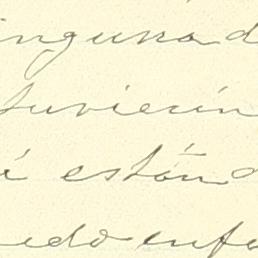 inguna d
tuvieran
i están d
edo enfa